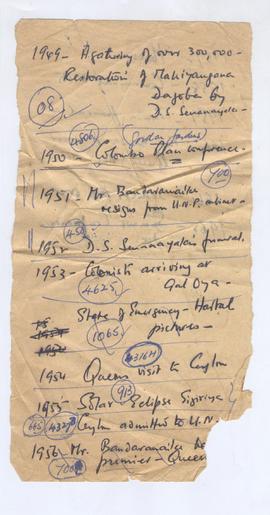 1949 - A gathering of over 300,000 -
Restoration of Mahiyangana
Dagoba by
08
D.S. Senanayake -
4506
1950 - Colombo Plan conference -
700
1951 - Mr. Bandaranaike
resigns from U.N.P. cabinet -
450
1952 - D.S. Senanayake's funeral.
1953 - Colonists arriving at
4625, Gal Oya -
State of Emergency - Hartal
1065 pictures -
4316H
1954 Queen visit to Ceylon
913
1955 - Solar Eclipse Sigiriya
665 4327 Ceylon admitted to U.N.
1956 - Mr. Bandaranaike
700 premier - Queen